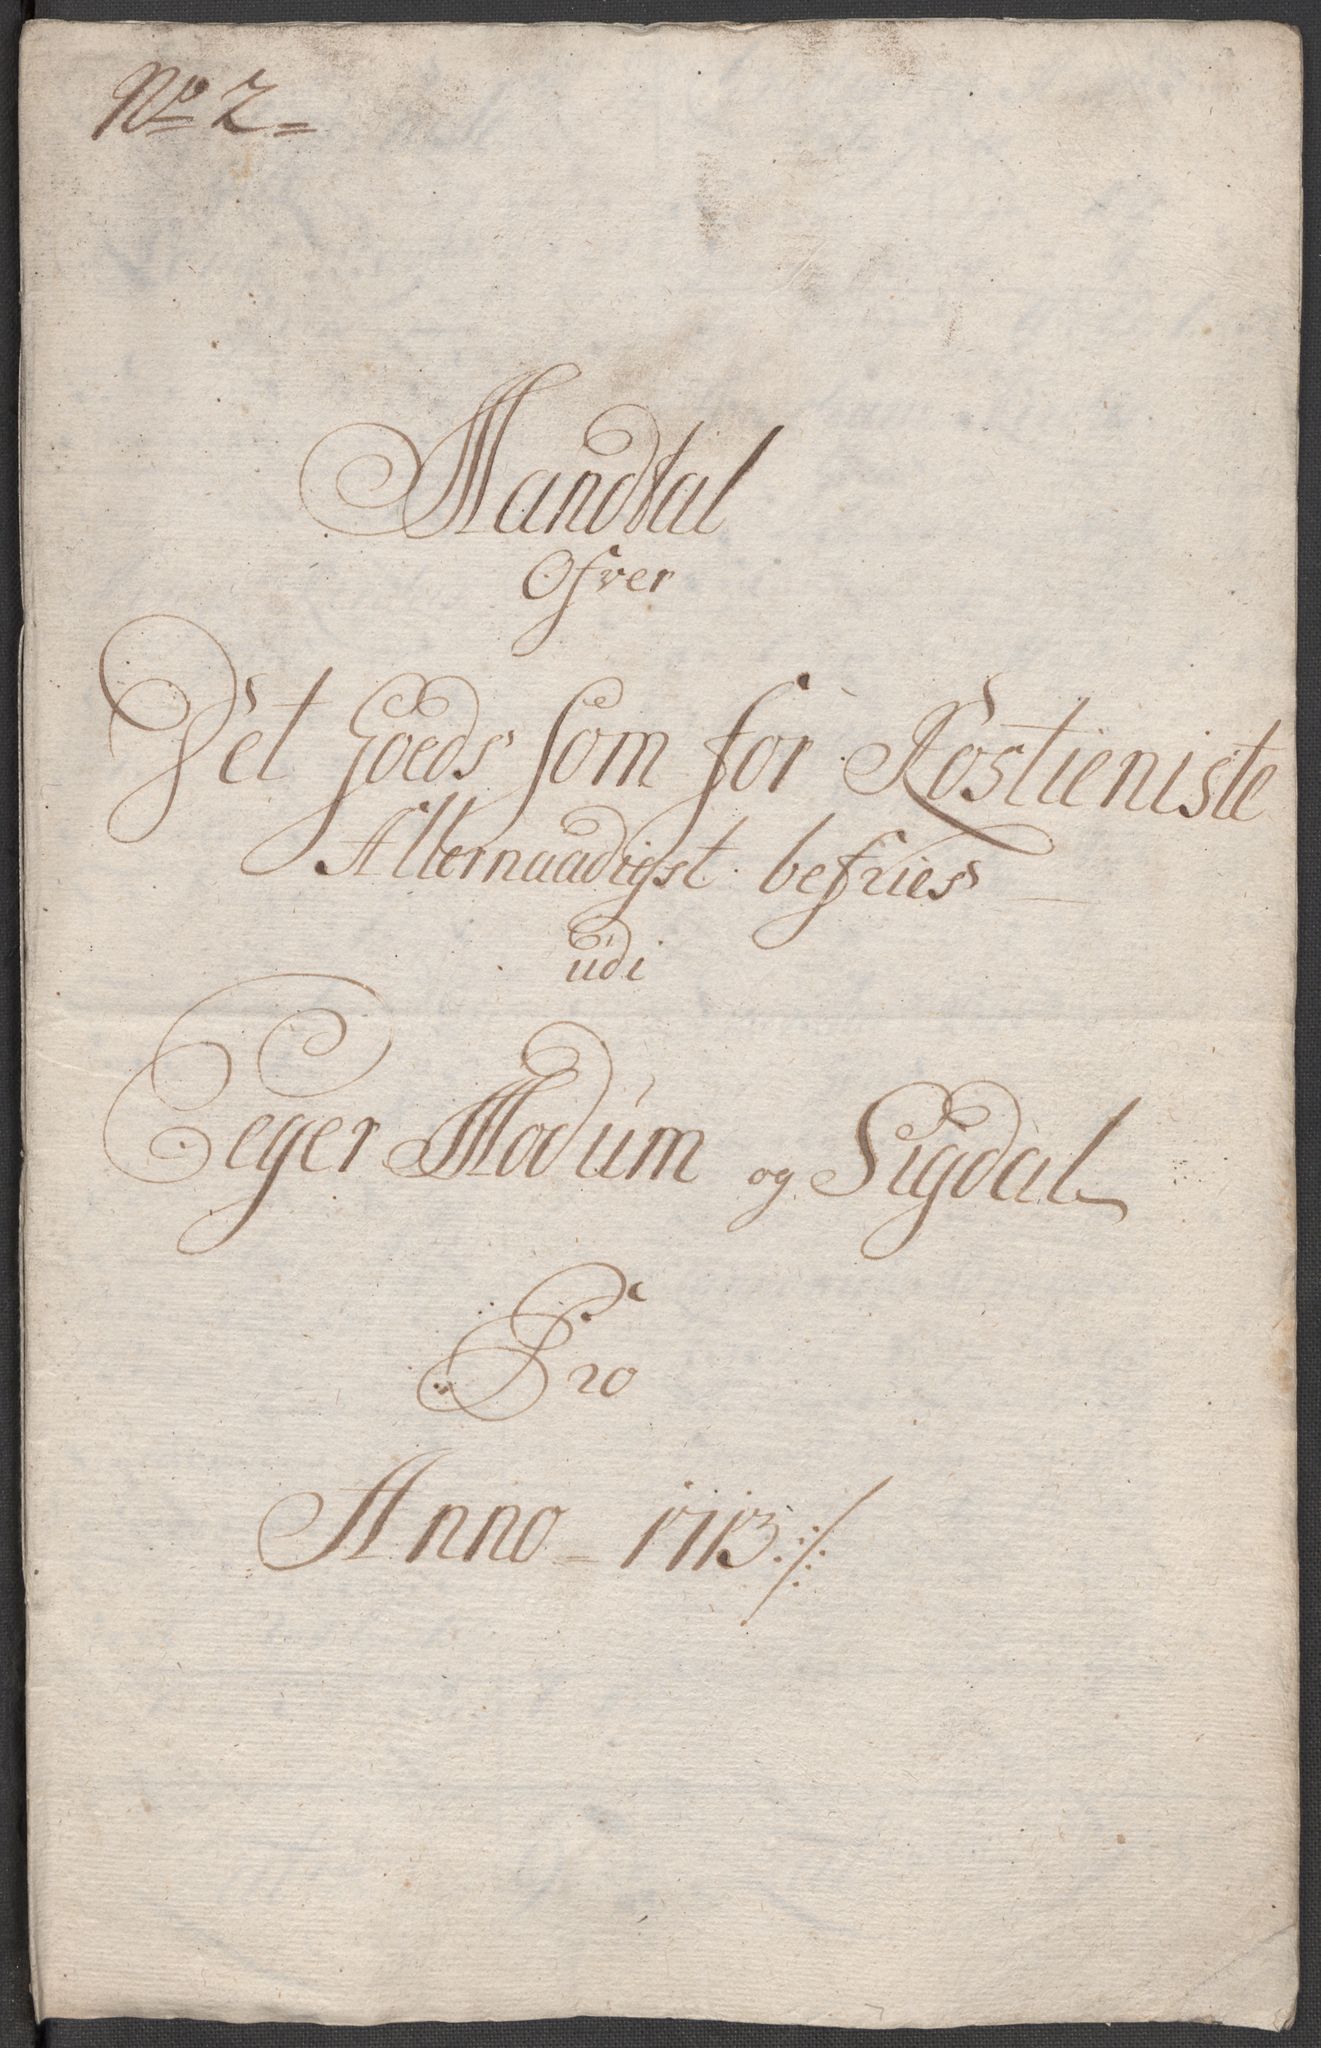 No 2=
Mandtal
Ofver
Det Goeds som for Rostieniste
Allernaadigst befries
udi
Eeger Modum og Sigdal
Pro
Anno - 1713 ./.